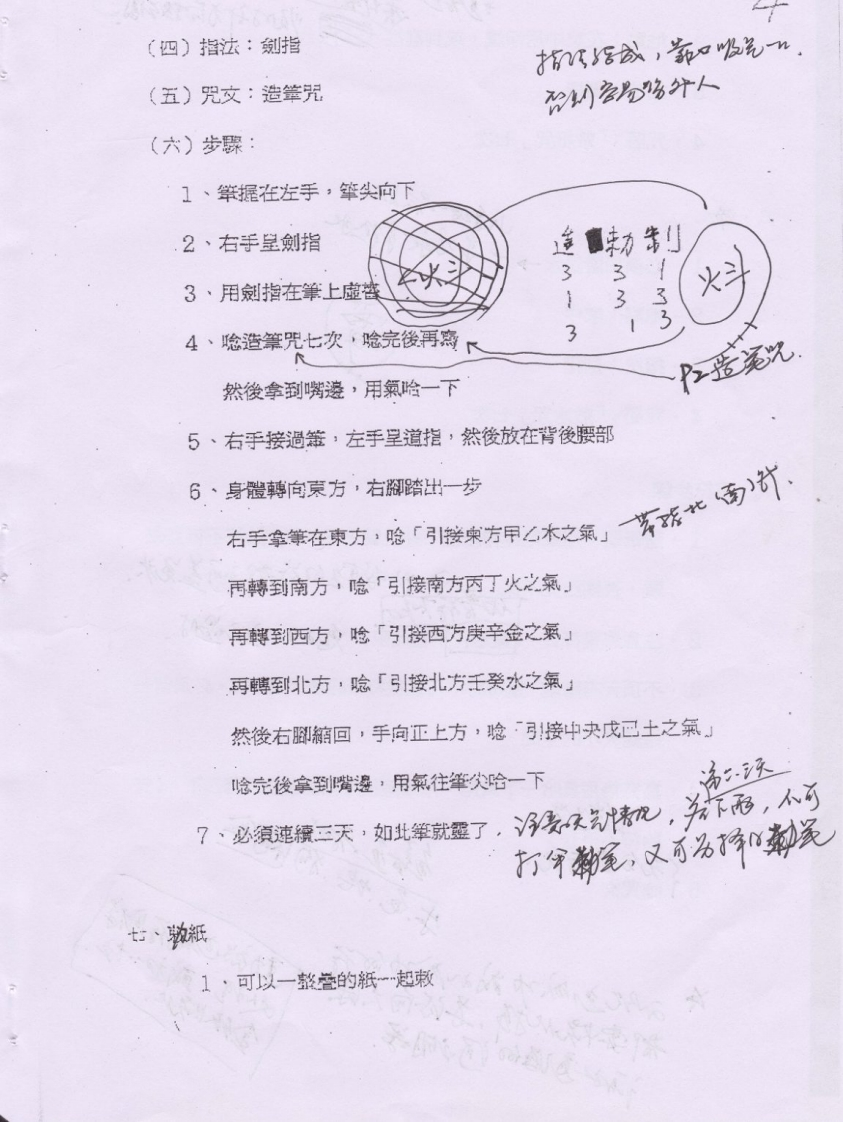 4
（四）指法：劍指
（五）咒文：造筆咒
（六）步驟：
1、筆握在左手，筆尖向下
2、右手呈劍指
3、用劍指在筆上虛書
火斗
造 勅 制
3 3 1
1 3 3
3 1 3
火斗
4、唸造筆咒七次，唸完後再寫
P2造筆咒.
然後拿到嘴邊，用氣哈一下
5、右手接過筆，左手呈道指，然後放在背後腰部
6、身體轉向東方，右腳踏出一步
右手拿筆在東方，唸「引接東方甲乙木之氣」
再轉到南方，唸「引接南方丙丁火之氣」
再轉到西方，唸「引接西方庚辛金之氣」
再轉到北方，唸「引接北方壬癸水之氣」
然後右腳縮回，手向正上方，唸「引接中央戊己土之氣」
唸完後拿到嘴邊，用氣往筆尖哈一下
7、必須連續三天，如此筆就靈了，注意天氣情況，若下雨，不可
七、敕紙
1、可以一整疊的紙一起敕